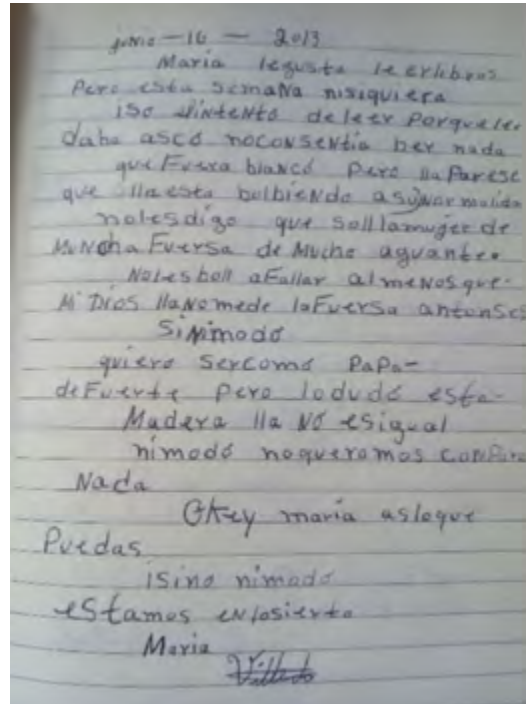 junio - 16 - 2013
Maria legusta leerlibros
Pero esta semana nisiquiera
iso dintento deleer Porquele
daba asco noconsentia ber nada
queFuera blanco Pero lla Parese
que llaesta bolbiendo asu normalida
nolesdigo que soll lamujer de
Muncha Fuersa de Mucho aguante.
Nolesboll aFallar almenosque
Mi Dios llaNomede laFuersa antonses
Sinimodo
quiero Sercomo PaPa-
deFuerte Pero lodudo esta-
Madera lla No esigual
nimodo noqueramos
Nada
Okey maria asloque
Puedas
isino nimodo
eStamos enlosierto
Maria